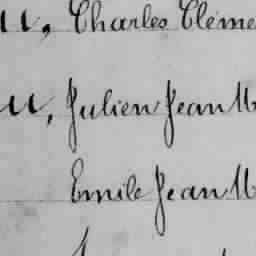 u, Charles Cléme
u, Julien Jean M
Emile Jean M